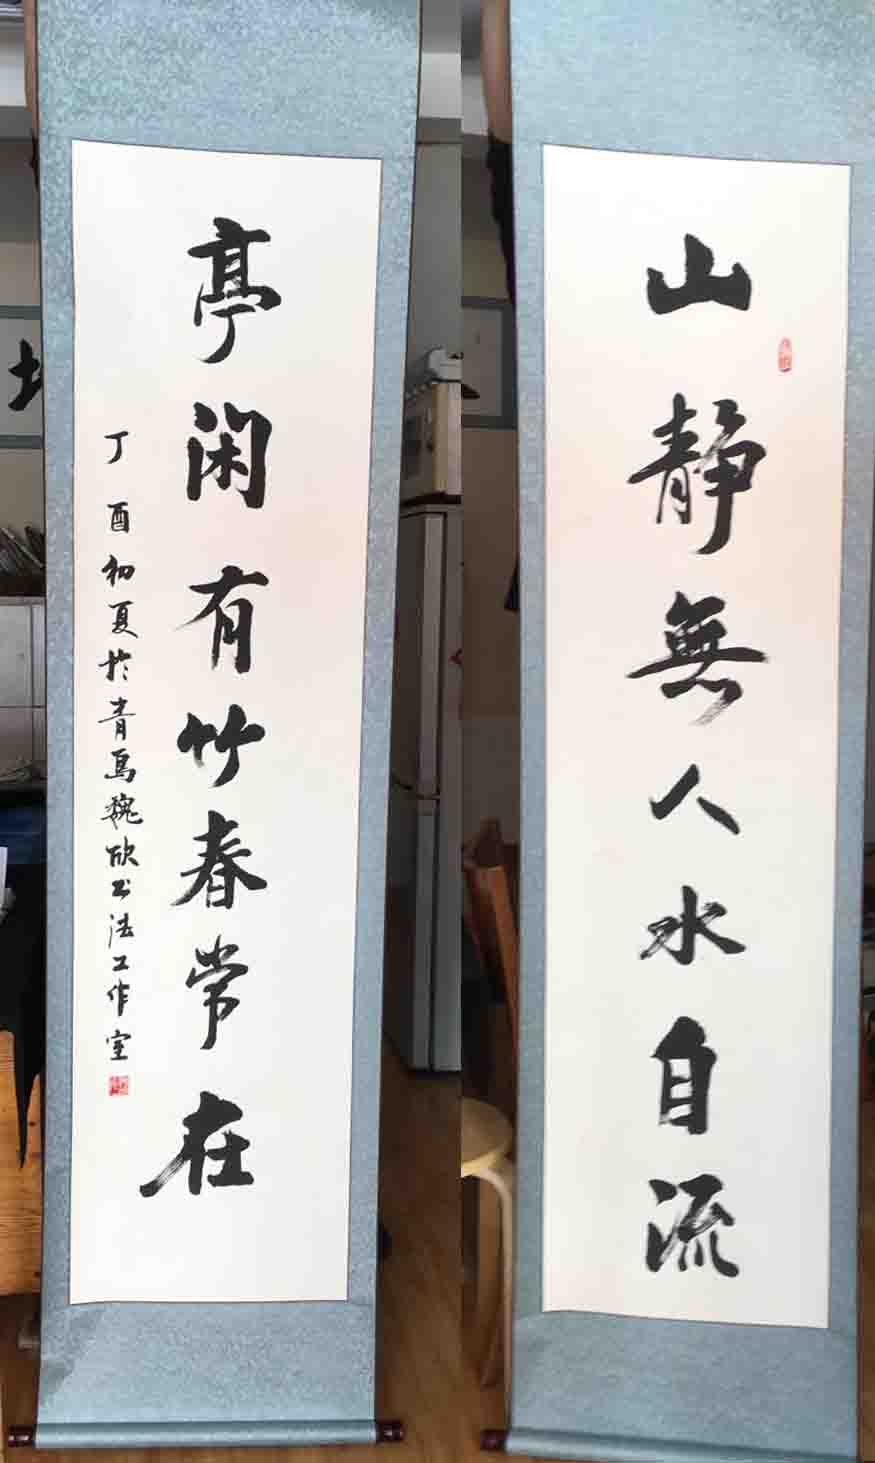 山静無人水自流
亭闲有竹春常在
丁酉初夏於青島魏欣书法工作室